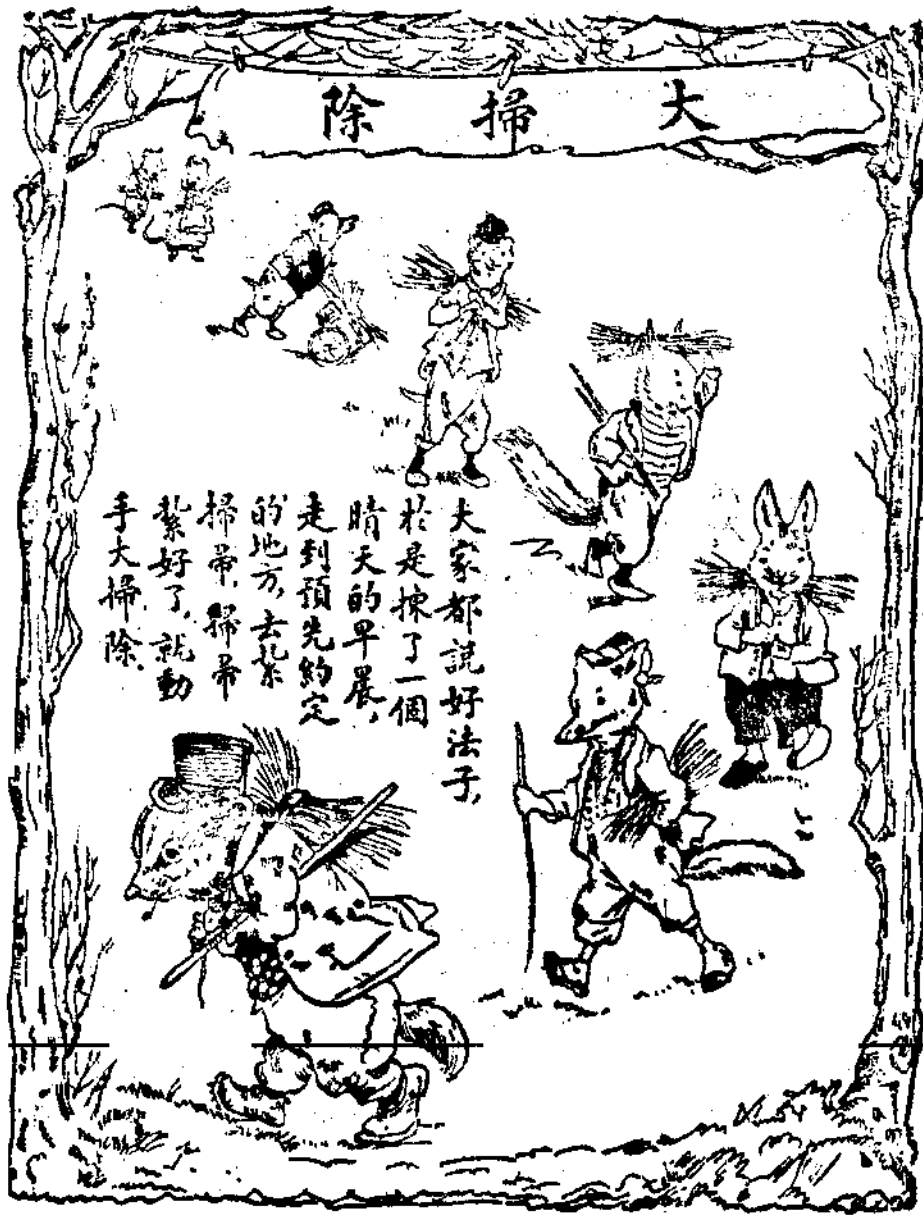 大掃除
大家都説好法子，
於是揀了一個
晴天的早晨，
走到預先約定
的地方，去紮
掃帚，掃帚
紮好了，就動
手大掃除．